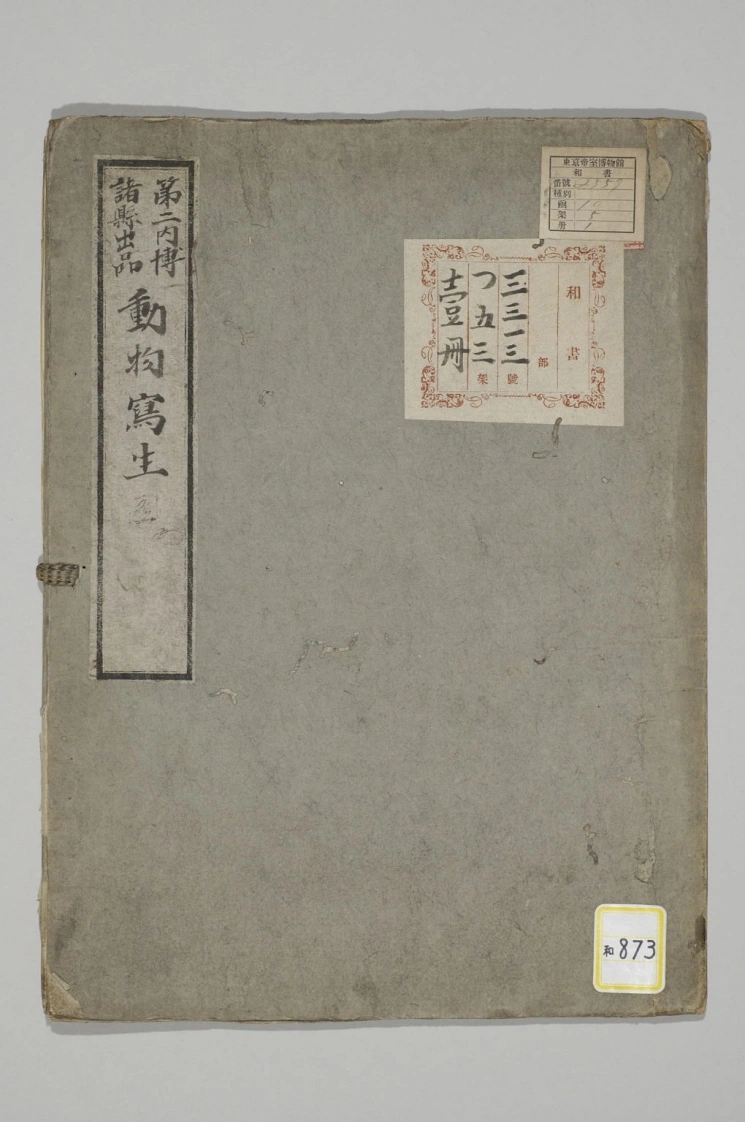 第二内博
諸縣出品
動物寫生
東京帝室博物館
和書
番號
種別
函 10
架 5
册 1
和書
部
三三一三號
つ五三架
壹册
和873